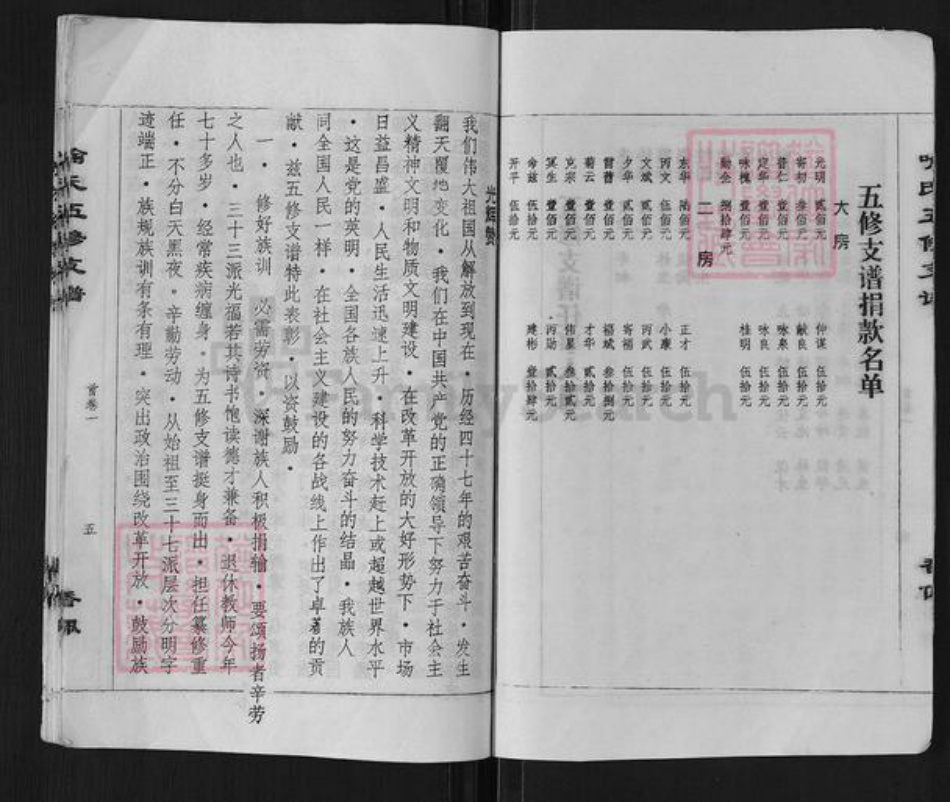 五修支谱捐款名单
大房
光明 贰佰元 仲谋 伍拾元
寄初 叁佰元 献良 伍拾元
晋仁 壹佰元 咏泉 伍拾元
定华 壹佰元 咏良 伍拾元
咏槐 壹佰元 桂明 伍拾元
勋全 捌拾肆元
二房
东华 陆佰元 正才 伍拾元
丙文 伍佰元 小康 伍拾元
文斌 贰佰元 丙武 伍拾元
夕华 贰佰元 寄福 伍拾元
雷曹 壹佰元 福斌 叁拾捌元
菊云 壹佰元 才华 贰拾元
克宗 壹佰元 伟星 叁拾贰元
冥生 壹佰元 丙勋 贰拾元
命兹 伍拾元 建彬 壹拾肆元
开平 伍拾元
光辉赞
我们伟大祖国从解放到现在·历经四十七年的艰苦奋斗·发生
翻天覆地变化·我们在中国共产党的正确领导下努力于社会主
义精神文明和物质文明建设·在改革开放的大好形势下·市场
日益昌盛·人民生活迅速上升·科学技术赶上或超越世界水平
·这是党的英明·全国各族人民的努力奋斗的结晶·我族人
同全国人民一样·在社会主义建设的各战线上作出了卓著的贡
献·兹五修支谱特此表彰·以资鼓励·
一·修好族训 必需劳资·深谢族人积极捐输·要颂扬者辛劳
之人也·三十三派光福若其诗书饱读德才兼备·退休教师今年
七十多岁·经常疾病缠身·为五修支谱挺身而出·担任纂修重
任·不分白天黑夜·辛勤劳动·从始祖至三十七派层次分明字
迹端正·族规族训有条有理·突出政治围绕改革开放·鼓励族
五修支谱
首卷一
五
FamilySearch